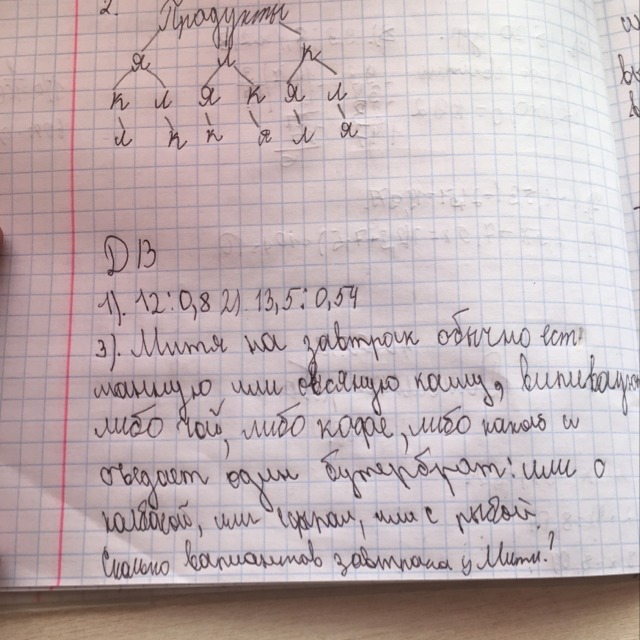 2. Продукты
я л к
к л я к я л
л к к я л я
Д/З
1). 12:0,8 2) 13,5:0,54
3). Митя на завтрак обычно ест
манную или овсяную кашу, выпивают
либо чай, либо кофе, либо какао и
съедает один бутерброт: или с
колбасой, или сыром, или с рыбой.
Сколько вариантов завтрака у Мити?